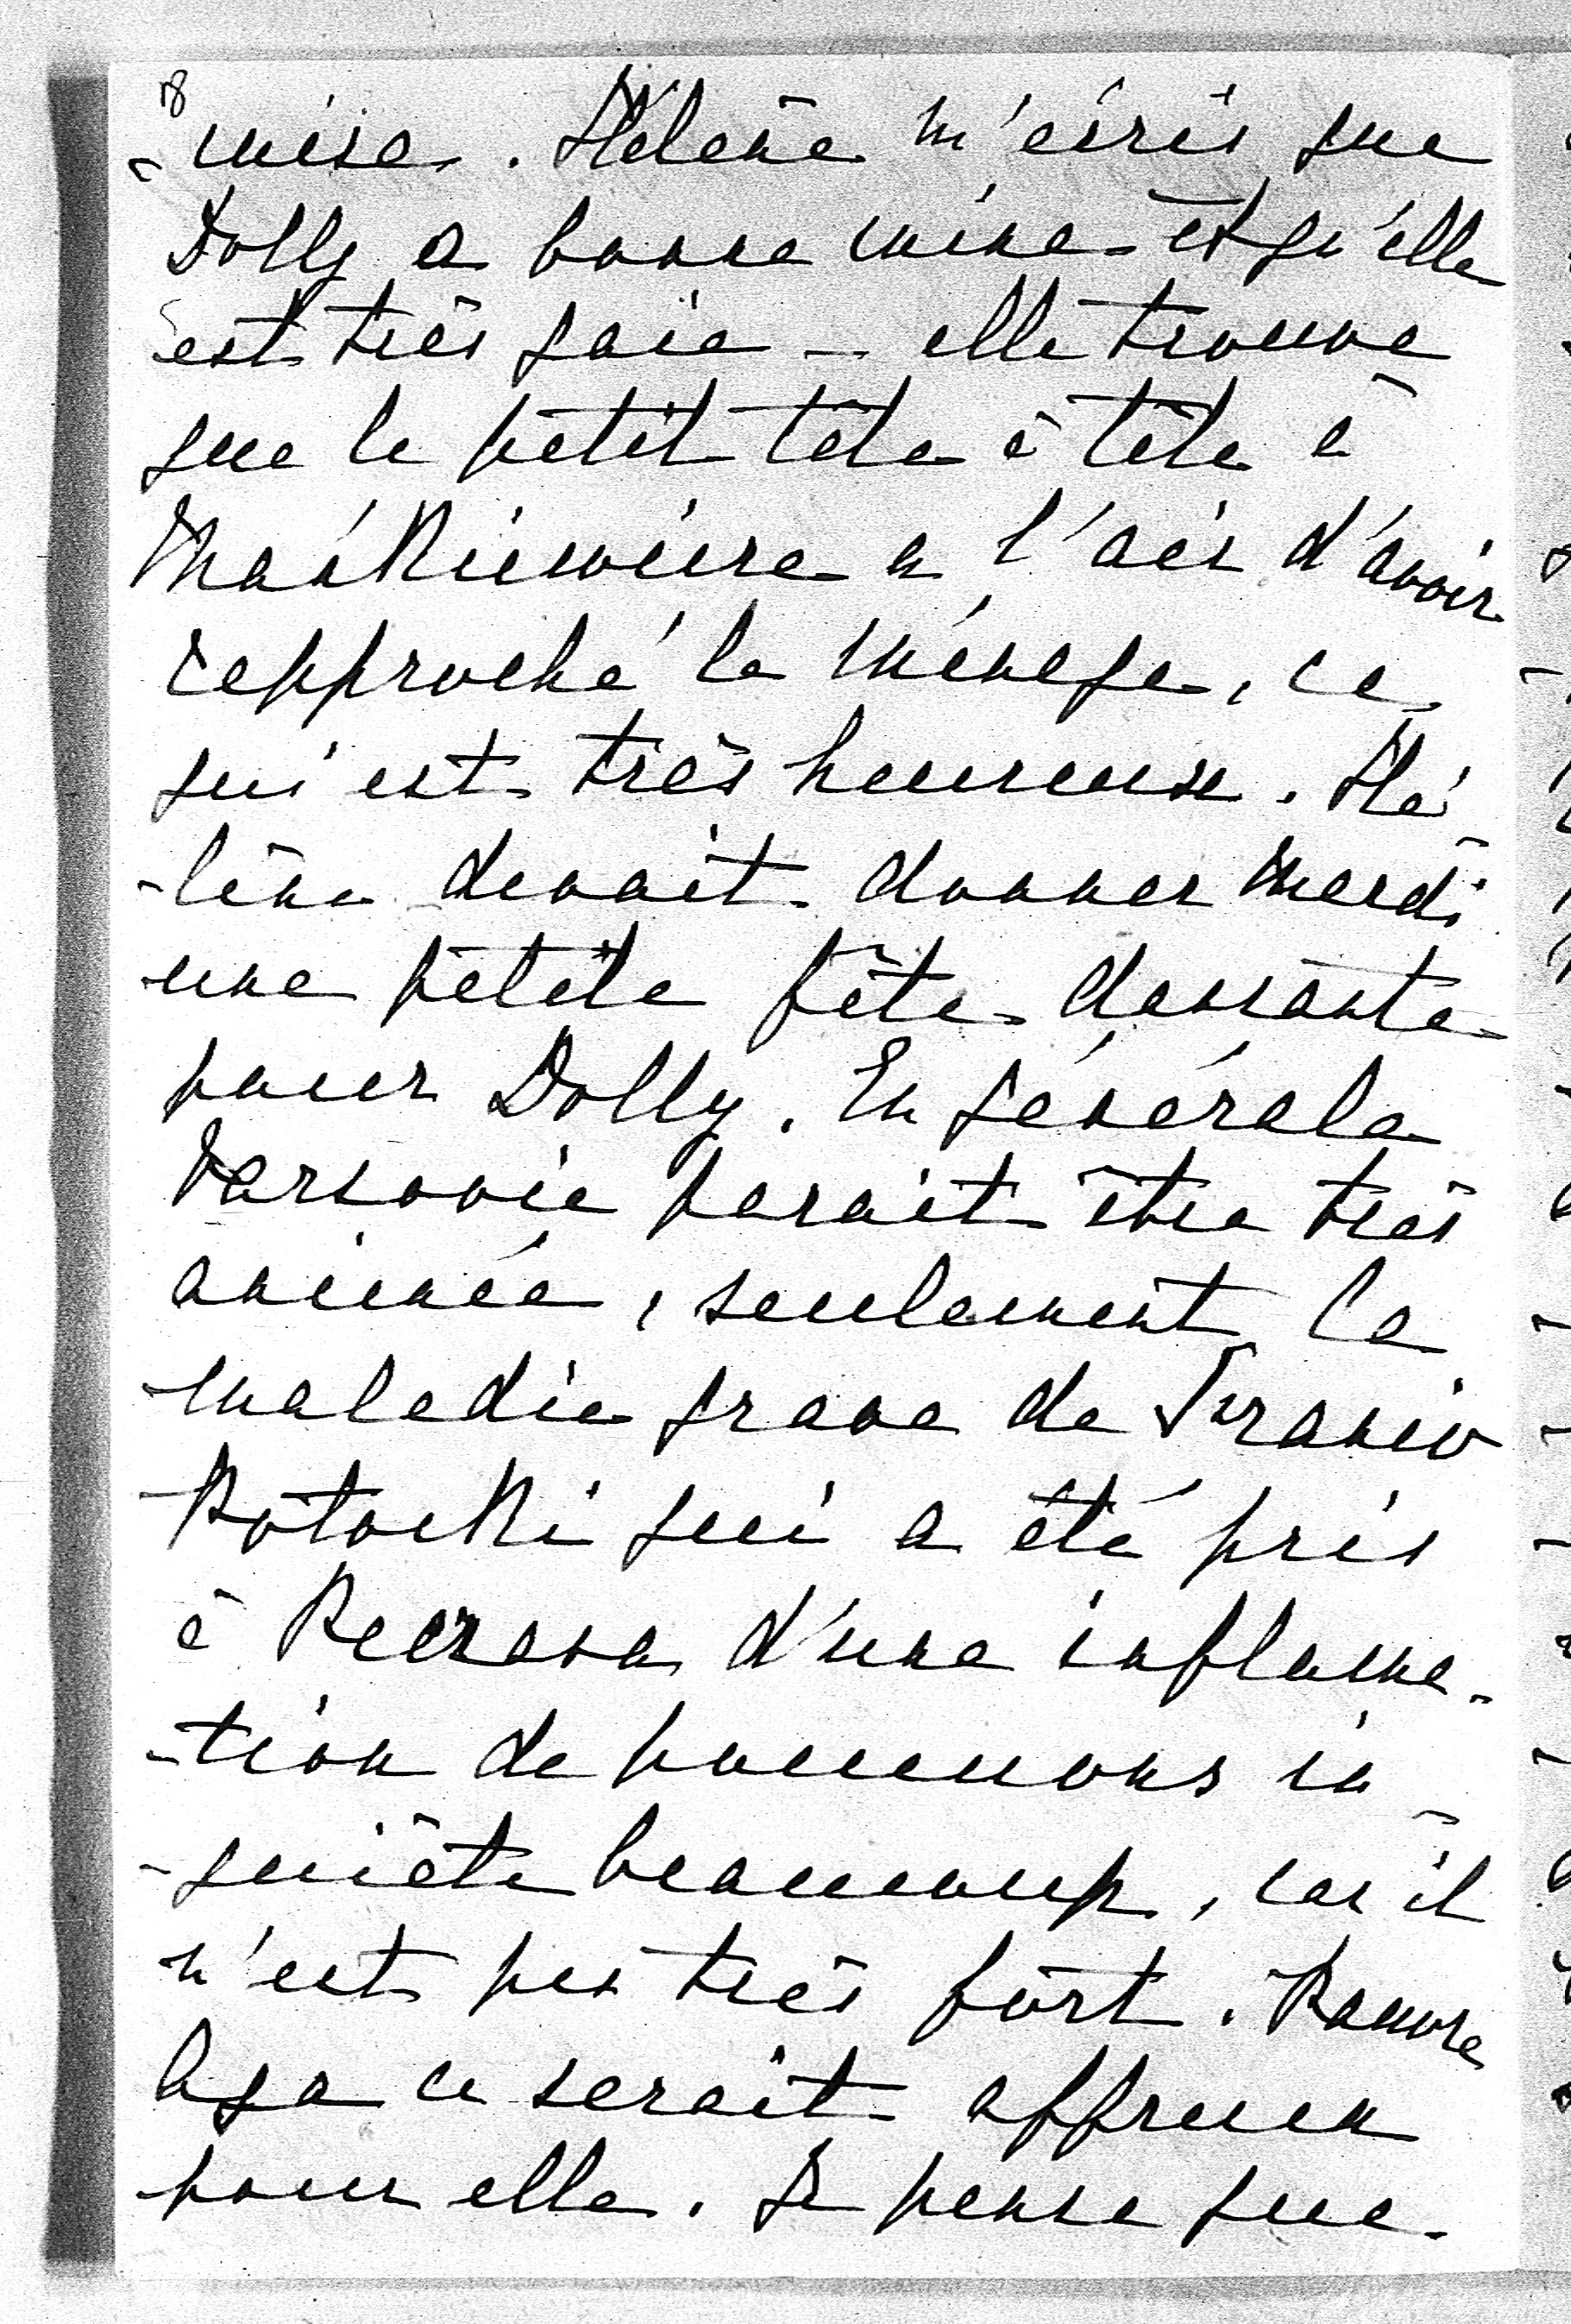 18
-mise. Hélène m'écris que
Dolly a bonne mine et qu'elle
est très gaie — elle trouve
que le petit tête à tête à
a l'air d'avoir
rapproché le ménage, ce
qui est très heureux. Hé-
-lène devait donner Mardi
une petite fête dansante
pour Dolly. En générale
Varsovie parait être très
animée, seulement la
maladie grave de Francio
Potocki qui a été pris
à Peczara d'une inflama-
-tion de poumons in-
-quiète beaucoup, car il
n'est pas très fort. Pauvre
ce serait affreux
pour elle. Je pense que